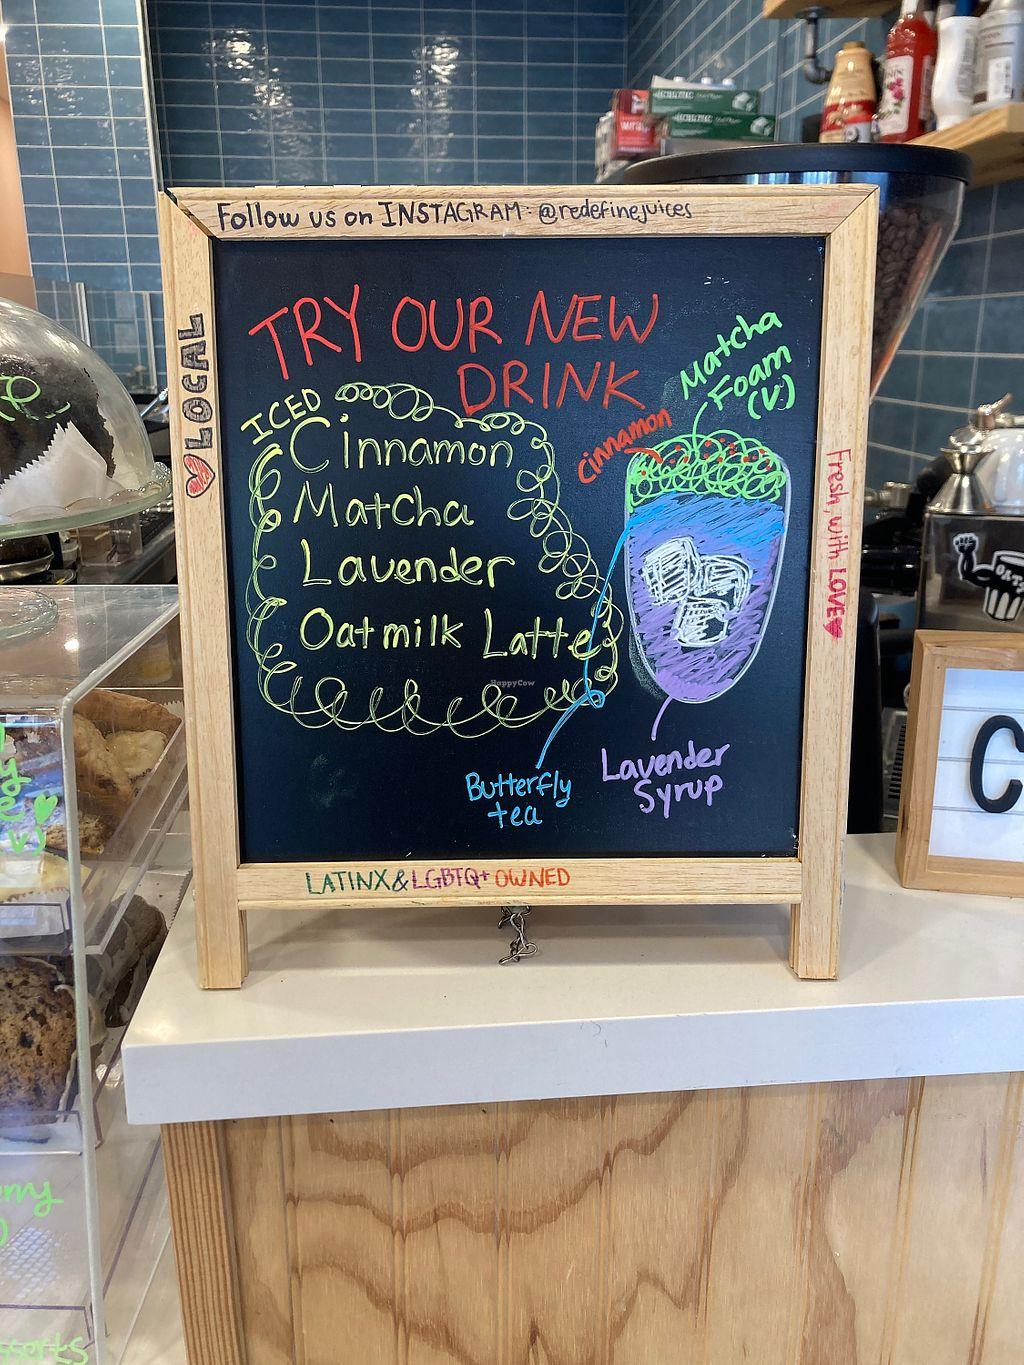 Follow us on INSTAGRAM: @redefinejuices
♥ LOCAL
TRY OUR NEW
DRINK
ICED
Cinnamon
Matcha
Lavender
Oatmilk Latte
Matcha
Foam
(V)
Cinnamon
Butterfly
tea
Lavender
Syrup
Fresh, with LOVE ♥
LATINX & LGBTQ+ OWNED
HappyCow
C